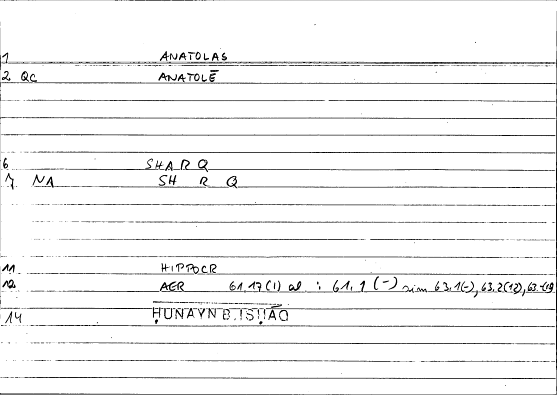 1 ANATOLAS
2 QC ANATOLĒ
6 SHARQ
7 NA SH R Q
11 HIPPOCR
12 AER 61,17(1) al : 61,1 (-) sim 63,1(-), 63,2(12), 63
14 ḤUNAYN B. ISḤĀQ